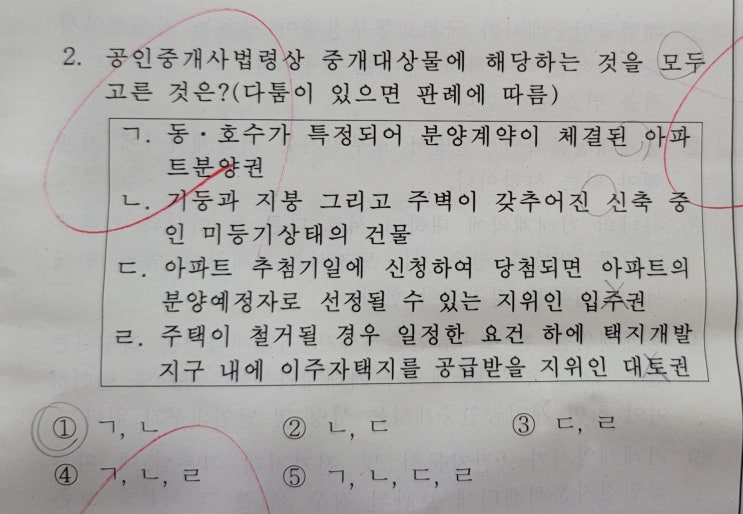 2. 공인중개사법령상 중개대상물에 해당하는 것을 모두
고른 것은?(다툼이 있으면 판례에 따름)
ㄱ. 동·호수가 특정되어 분양계약이 체결된 아파
트분양권
ㄴ. 기둥과 지붕 그리고 주벽이 갖추어진 신축 중
인 미등기상태의 건물
ㄷ. 아파트 추첨기일에 신청하여 당첨되면 아파트의
분양예정자로 선정될 수 있는 지위인 입주권
ㄹ. 주택이 철거될 경우 일정한 요건 하에 택지개발
지구 내에 이주자택지를 공급받을 지위인 대토권
① ㄱ, ㄴ ② ㄴ, ㄷ ③ ㄷ, ㄹ
④ ㄱ, ㄴ, ㄹ ⑤ ㄱ, ㄴ, ㄷ, ㄹ